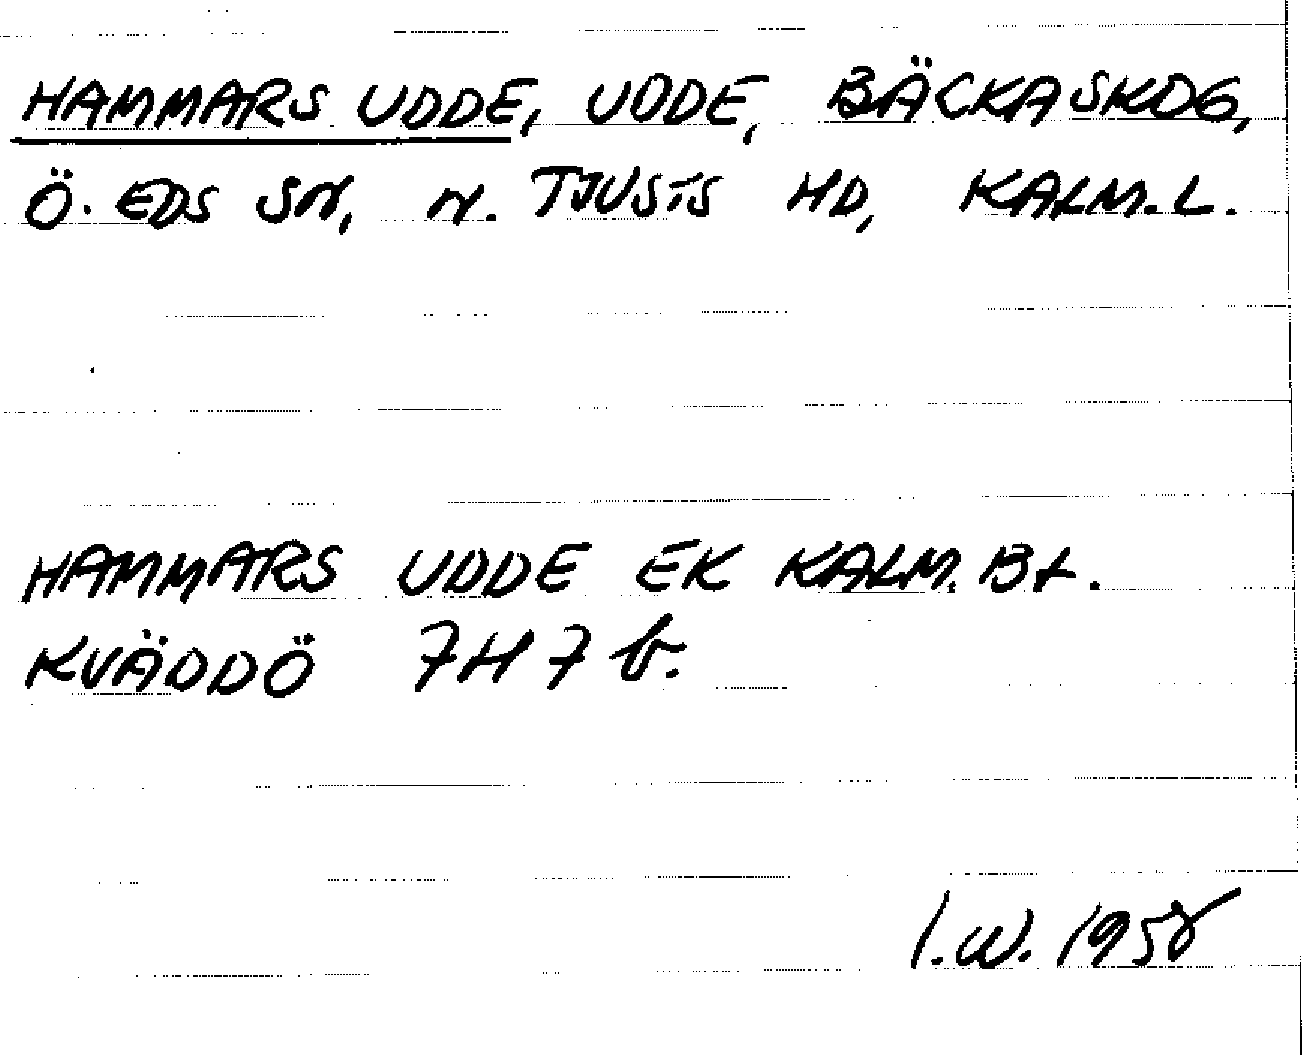 HAMMARS UDDE, UDDE, BÄCKASKOG,
Ö. EDS SN, N. TJUSTS HD, KALM. L.
HAMMARS UDDE EK KALM. BL.
KVÄDDÖ 7H 7 b.
I.W. 1958